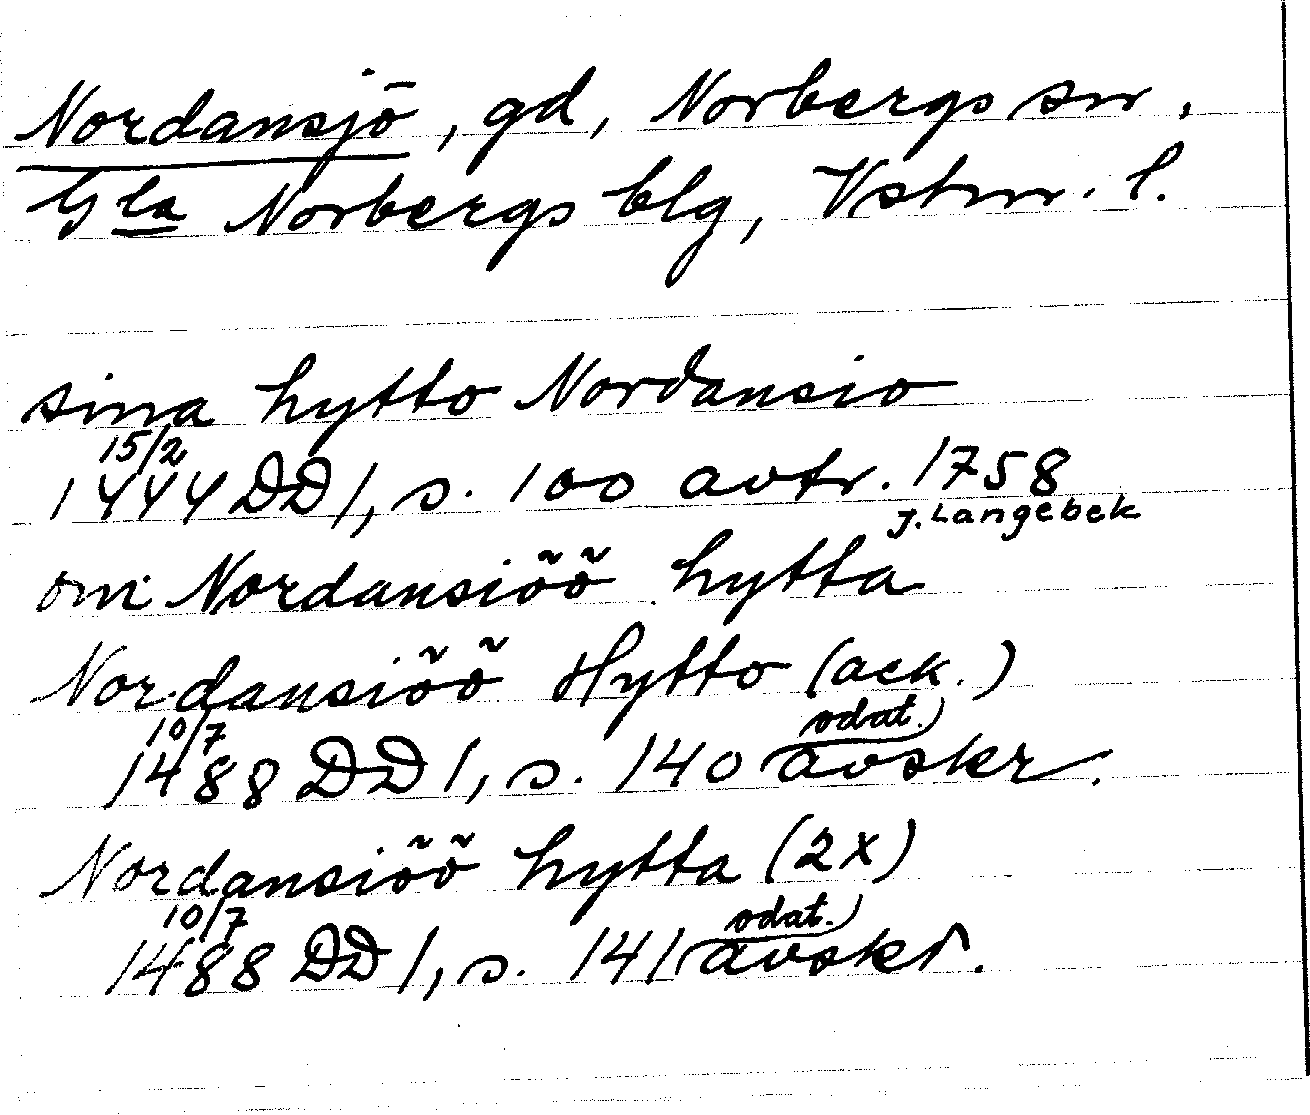 Nordansjö, gd, Norbergs sn,
Gla Norbergs blg, Vstm. l.
sina hytto Nordansio
15/2
1444 DD 1, s. 100 avtr. 1758
J. Langebek
om Nordansiöö hytta
Nordansiöö Hytto (ack.)
10/7 odat.
1488 DD 1, s. 140 avskr.
Nordansiöö hytta (2x)
10/7 odat.
1488 DD 1, s. 141 avskr.